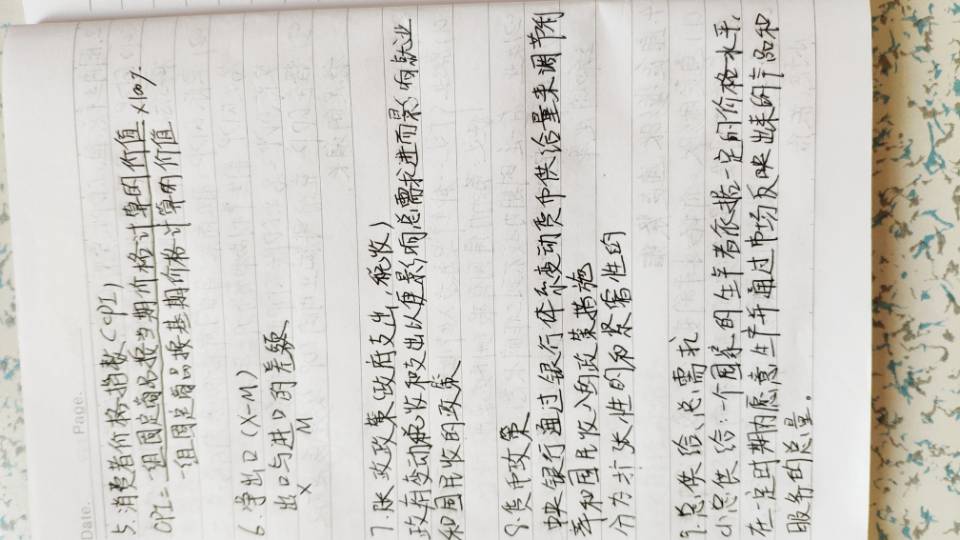 Date.
Page.
5.消费者价格指数(CPI)
CPI=一组固定商品按当期价格计算的价值 ×100%
一组固定商品按基期价格计算的价值
6.净出口(X-M)
出口与进口的差额
X M
7.财政政策(政府支出,税收)
政府变动税收和支出以便影响总需求进而影响就业
和国民收的政策
8.货币政策
中央银行通过银行体系变动货币供给量来调节利
率和国民收入的政策措施
分为扩张性的和紧缩性的
9.总供给、总需求
(1)总供给:一个国家的生产者依据一定的价格水平,
在一定时期内愿意生产并通过市场反映出来的产品和
服务的总量。